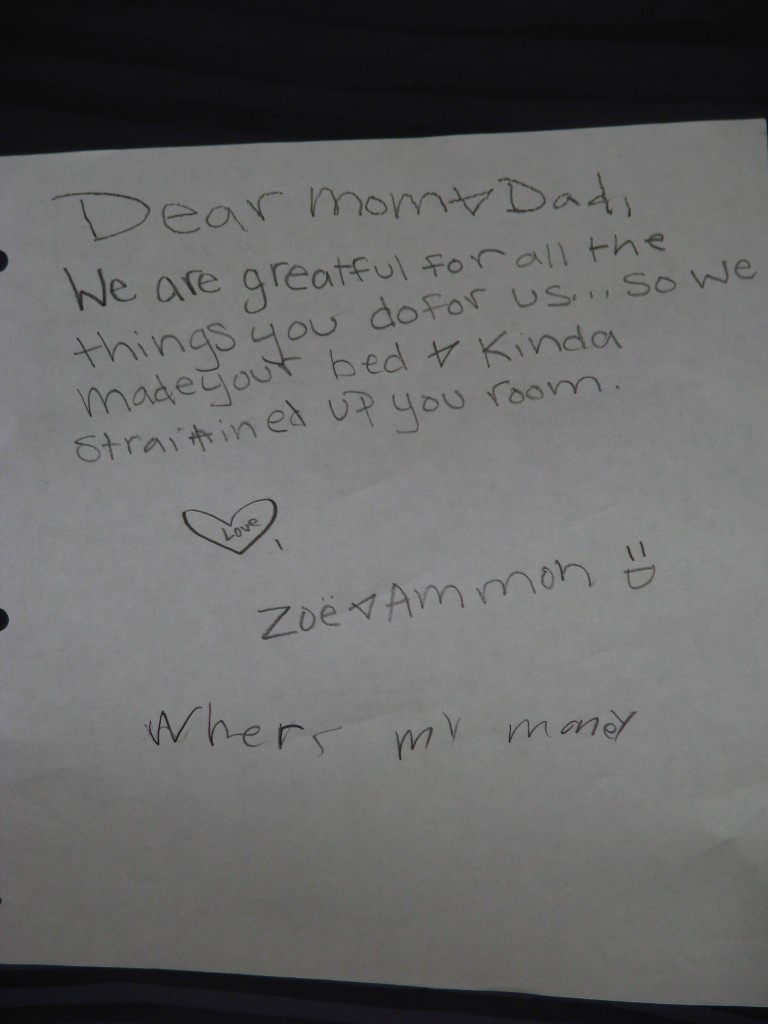 Dear mom & Dad,
We are greatful for all the
things you do for us... So we
made your bed & Kinda
straitined up you room.
Love,
Zoë & Ammon =D
Whers my money